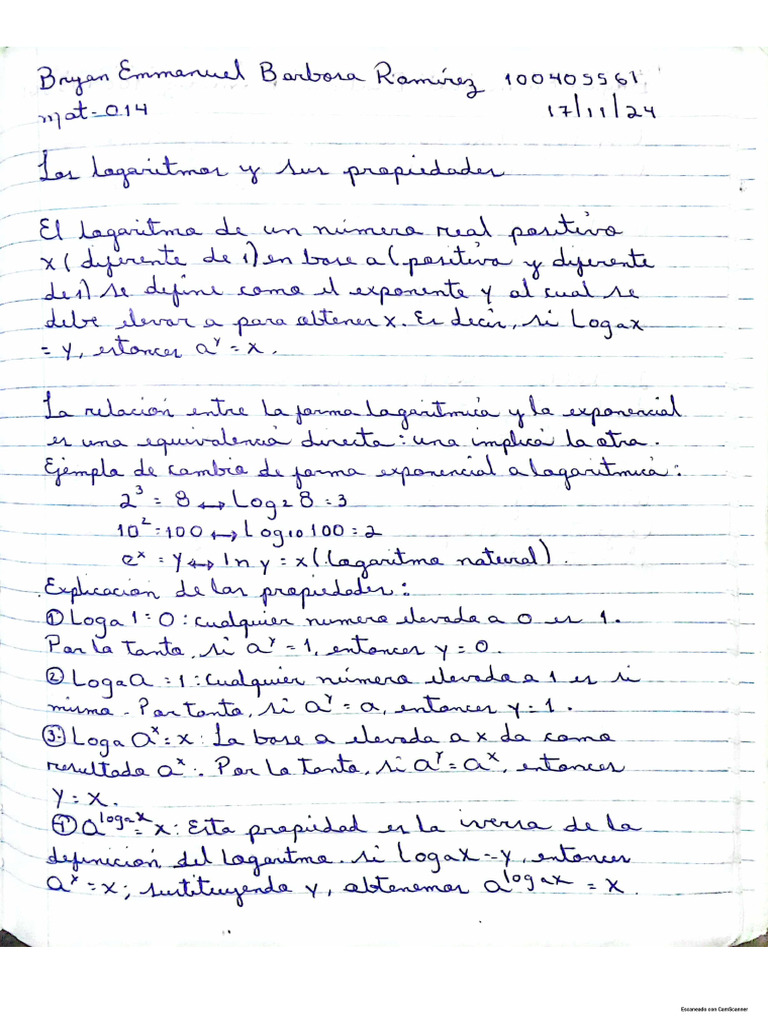 Bryan Emmanuel Barbosa Ramírez 100405561
mat-014 17/11/24
Los logaritmos y sus propiedades
El logaritmo de un número real positivo
x (diferente de 1) en base a (positivo y diferente
de 1) se define como el exponente y al cual se
debe elevar a para obtener x. Es decir, si Logax
= y, entonces aʸ = x.
La relación entre la forma logarítmica y la exponencial
es una equivalencia directa: una implica la otra.
Ejemplo de cambio de forma exponencial a logarítmica:
2³ = 8 ↔ Log₂ 8 = 3
10² = 100 ↔ Log₁₀ 100 = 2
eˣ = y ↔ ln y = x (logaritmo natural).
Explicación de las propiedades:
① Loga 1 = 0 : cualquier numero elevado a 0 es 1.
Por lo tanto, si aʸ = 1, entonces y = 0.
② Loga a = 1 : cualquier número elevado a 1 es si
mismo. Por tanto, si aʸ = a, entonces y = 1.
③ Loga aˣ = x : La base a elevada a x da como
resultado aˣ. Por lo tanto, si aʸ = aˣ, entonces
y = x.
④ a^logax = x : Esta propiedad es la inversa de la
definición del logaritmo. si Logax = y, entonces
aˣ = x; sustituyendo y, obtenemos a^logax = x.
Escaneado con CamScanner